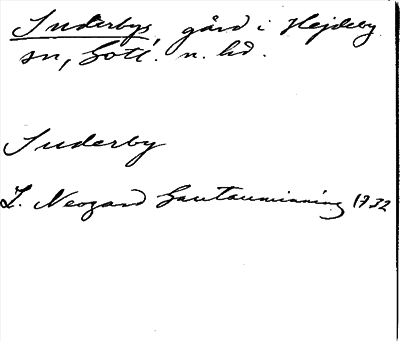 Suderbys, gård i Hejdeby
sn, Gotl. n. hd.
Suderby
L. Neogard Gautauminning 1732